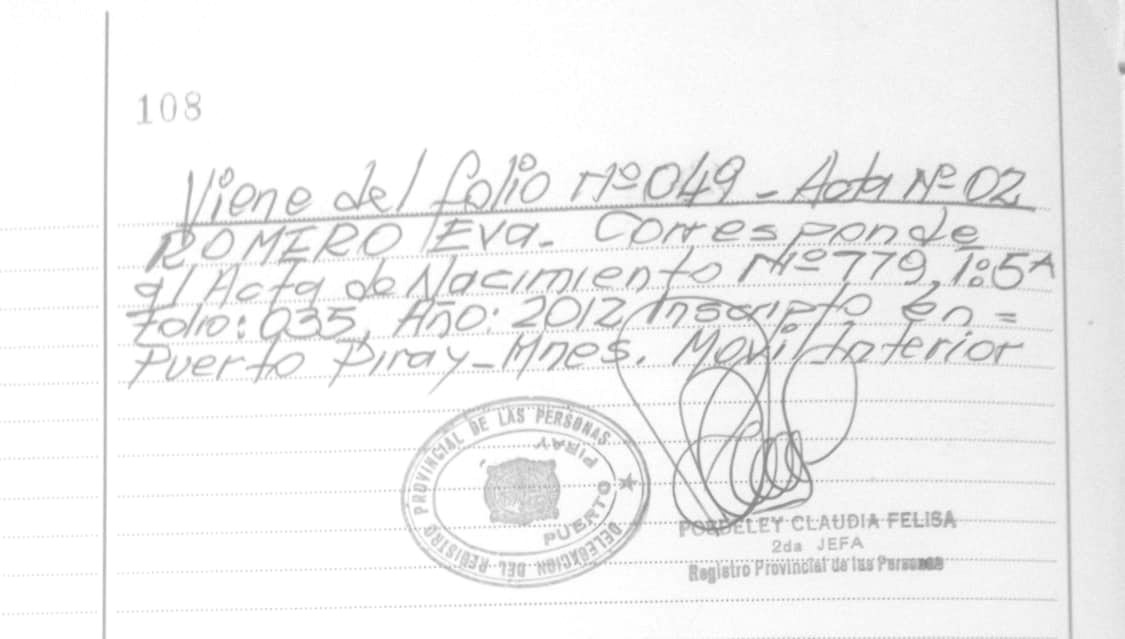 108
Viene del folio Nº 049 - Acta Nº 02
ROMERO Eva. Corresponde
al Acta de Nacimiento Nº 779, T:5ª
Folio: 035, Año: 2012 Inscripto en =
Puerto Piray - Mnes. Movil Interior
DELEGACION DEL REGISTRO PROVINCIAL DE LAS PERSONAS
PUERTO PIRAY
PORDELEY CLAUDIA FELISA
2da JEFA
Registro Provincial de las Personas